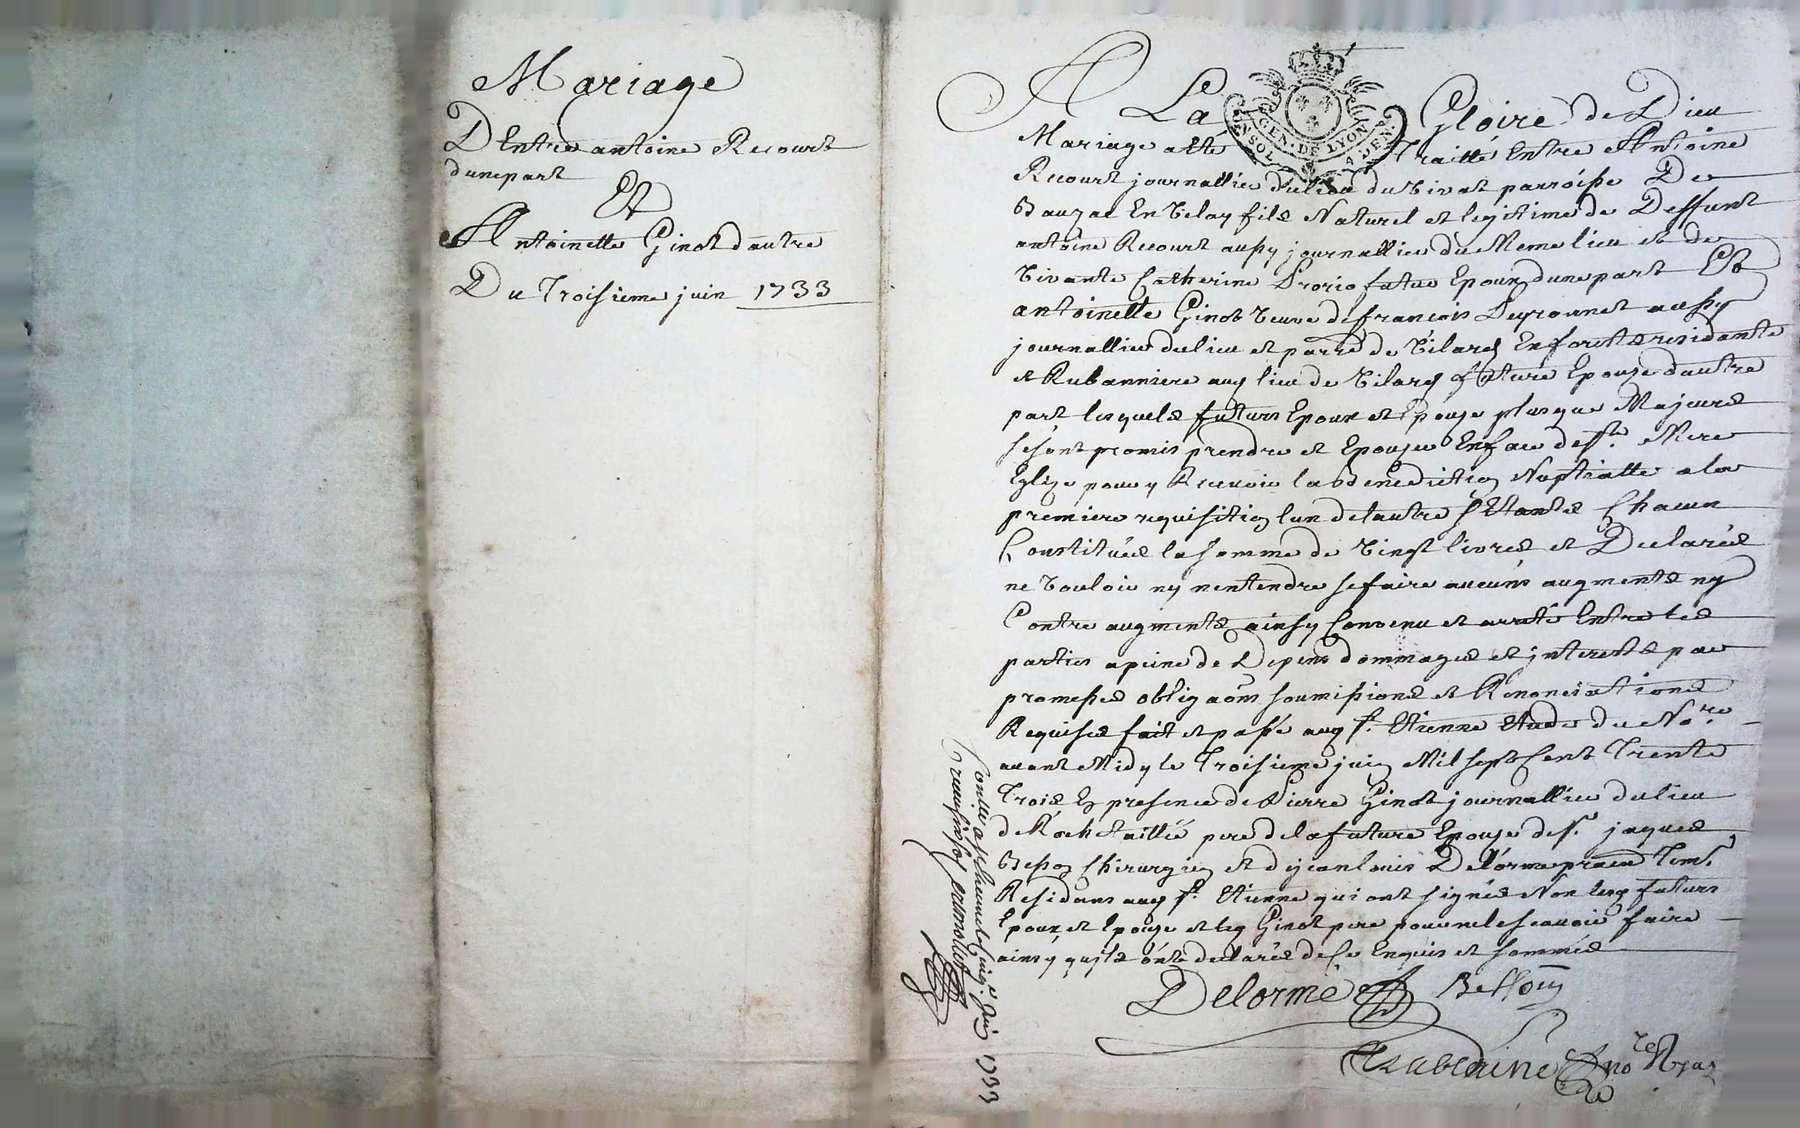 Mariage
D'Entre antoine Recourt
dunepart
Et
Antoinette Ginot dautre
Du Troisieme juin 1733
A La Gloire de Dieu
GEN. DE LYON
UN SOL 4 DEN.
Mariage a ete Traitté Entre Antoine
Recourt journallier du lieu du Vivat parroisse De
Bauzac En Velay fils Naturel et legitime de Deffunt
antoine Recourt aussy journallier du Meme lieu et de
Vivante Catherine futur Epoux dunepart Et
antoinette Ginot veuve de francois Peyronnet aussy
journallier du lieu et parr.e de Vilard En forest residante
et Rubanniere aud lieu de Vilard future Epouze dautre
part lesquels futurs Epoux et Epouze plusque Majeurs
se sont promis prendre et Epouzer En face de s.te Mere
Eglize pour y Recevoir la Benediction Nuptialle a la
premiere requisition lun de lautre s'Etants Chacun
Constitués la somme de Vingt livres et Declarés
ne Vouloir ny nentendre se faire aucuns augments ny
Contre augments ainsy Convenu et arreté Entre les
parties a peine de Depens dommages et jnterests par
promesses obligaôns soumissions et Renonciations
Requises fait et passé aud s.t Etienne Etude du No.re
avant Midy le Troisieme juin Mil sept Cent Trente
Trois En presence de Pierre Ginot journallier du lieu
de Rochetaillée pere de la future Epouze de s.r jaques
Besson Chirurgien et de jean louis Delorme pratici
Residans aud s.t Etienne qui ont signés Non lesd futurs
Epoux et Epouze et led Ginot pere pour ne le scavoir faire
ainsy quils ont declarés de Ce Enquis et sommés
Delorme Besson
no.re Royal
juin 1733